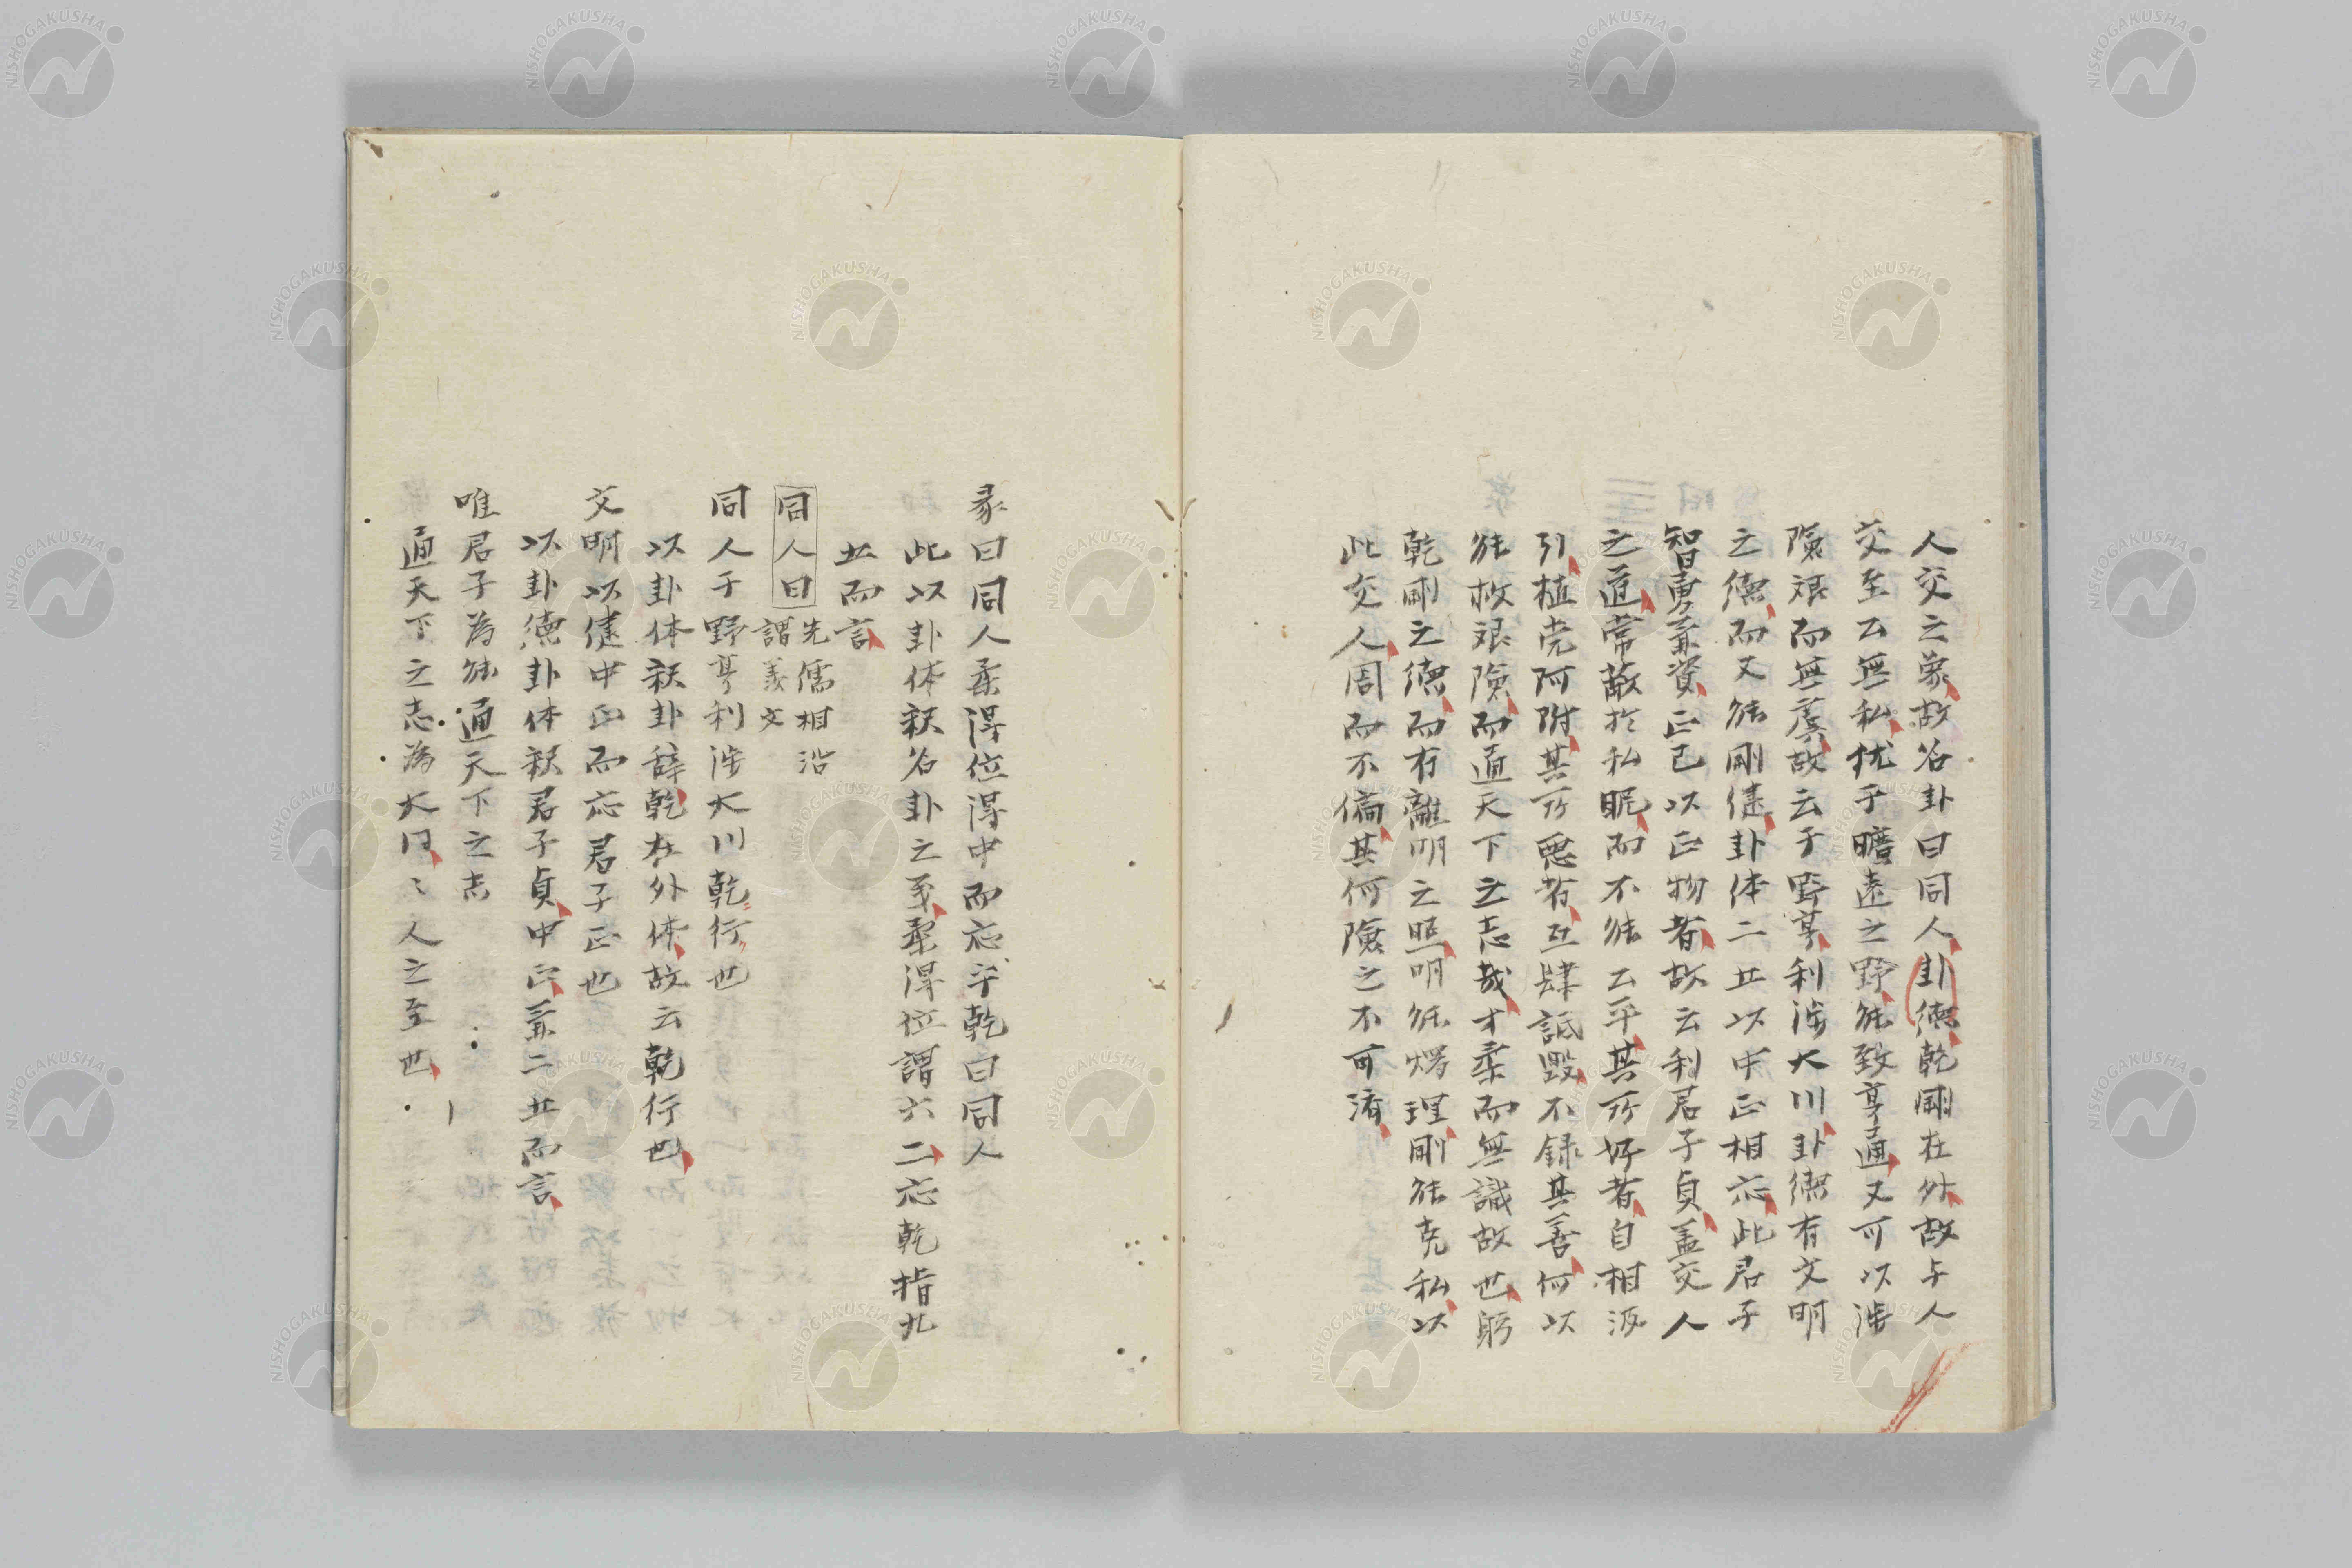 人交之象故名卦曰同人卦徳乾剛在外故与人
交至公無私扰乎曠遠之野能致亨通又可以渉
險艰而無虞故云于野亨利渉大川卦徳有文明
之徳而又能剛健卦体二五以中正相应此君子
智勇兼資正己以正物者故云利君子貞蓋交人
之道常蔽於私昵而不能公平其所好者自相
引植党阿附其所惡者互肆詆毀不録其善何以
能救艰險而通天下之志哉才柔而無識故也躬
乾剛之徳而有離明之照明能燭理剛能克私以
此交人周而不偏其何險之不可済
彖曰同人柔得位得中而应乎乾曰同人
此以卦体釈名卦之義柔得位謂六二应乾指九
五而言
同人曰 先儒相沿
謂羨文
同人于野亨利渉大川乾行也
以卦体釈卦辞乾在外体故云乾行也
文明以健中正而应君子正也
以卦徳卦体釈君子貞中正兼二五而言
唯君子為能通天下之志
通天下之志為大同〻人之至也
NISHOGAKUSHA